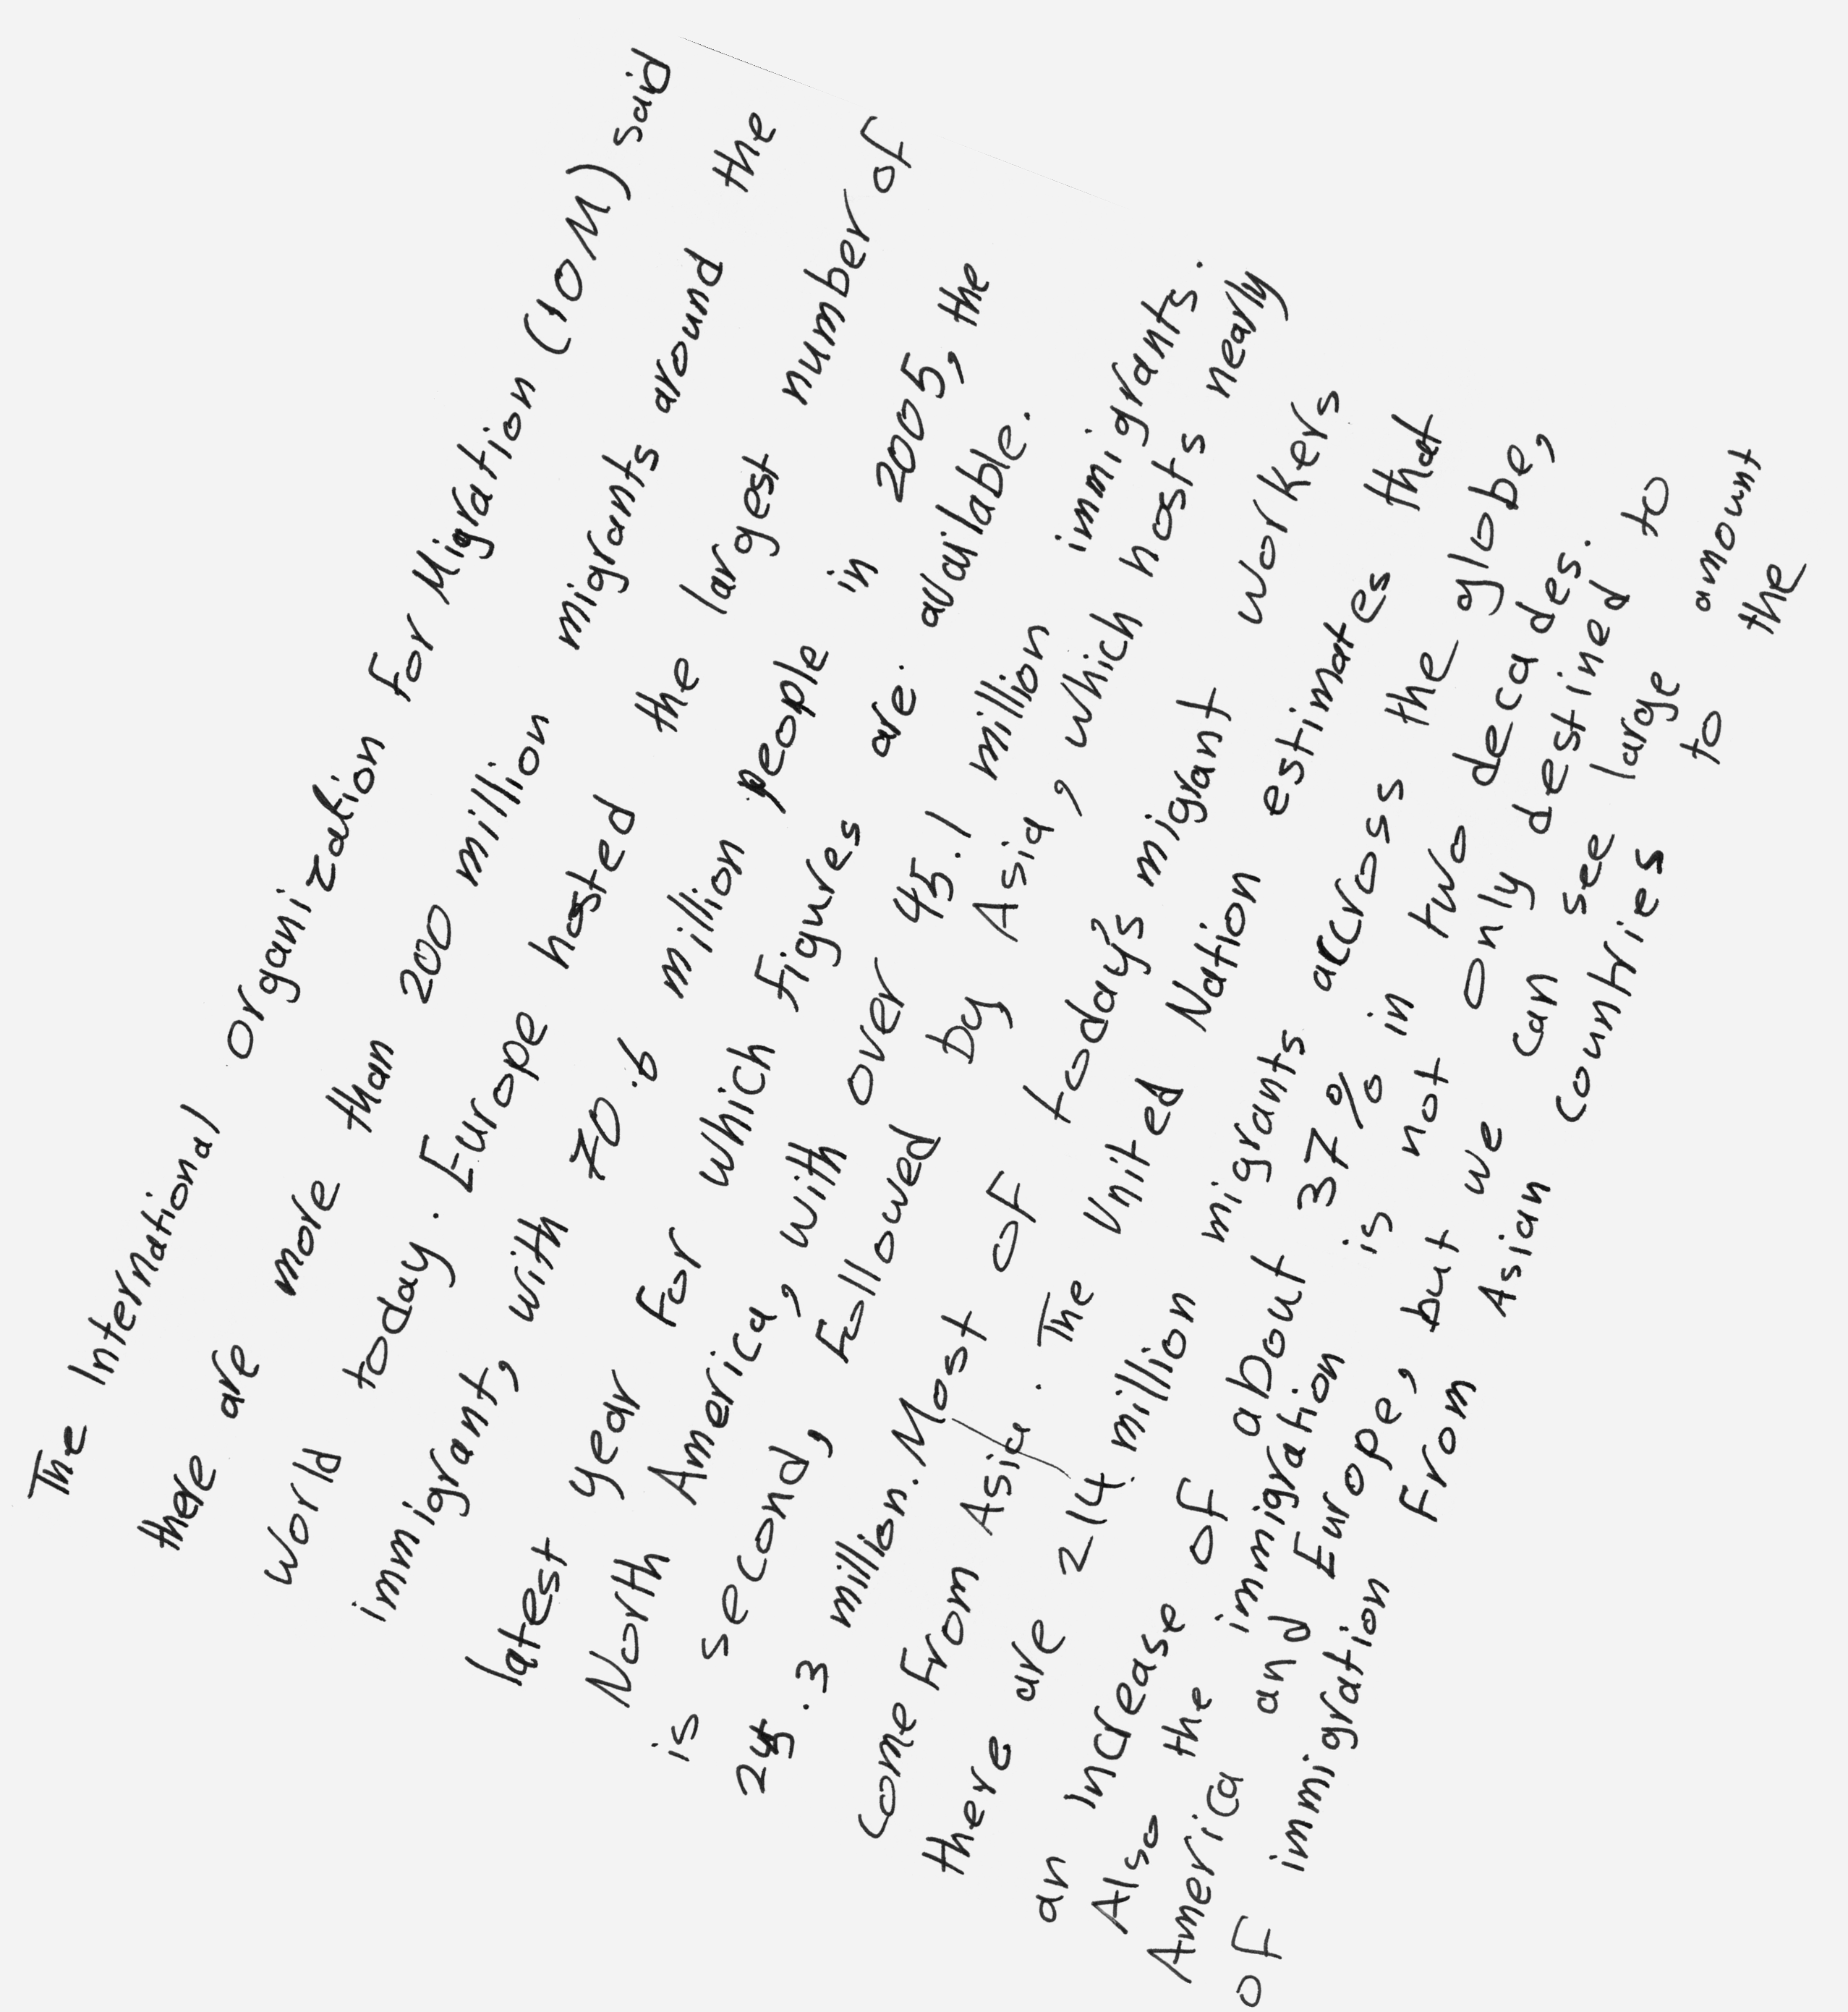 The International Organization For Migration (IOM) said
there are more than 200 million migrants around the
world today. Europe hosted the largest number of
immigrant, with 70.6 million people in 2005, the
latest year For which Figures are. available.
North America, with over 45.1 million immigrants.
is second, Followed by Asia, which hosts nearly
25.3 million. Most of today's migrant workers
come From Asia. The United Nation estimates that
there are 214 million migrants accross the globe,
an increase of about 37% in two decades.
Also the immigration is not only destined to
America and Europe, but we can see large amount
of immigration From Asian countries to the